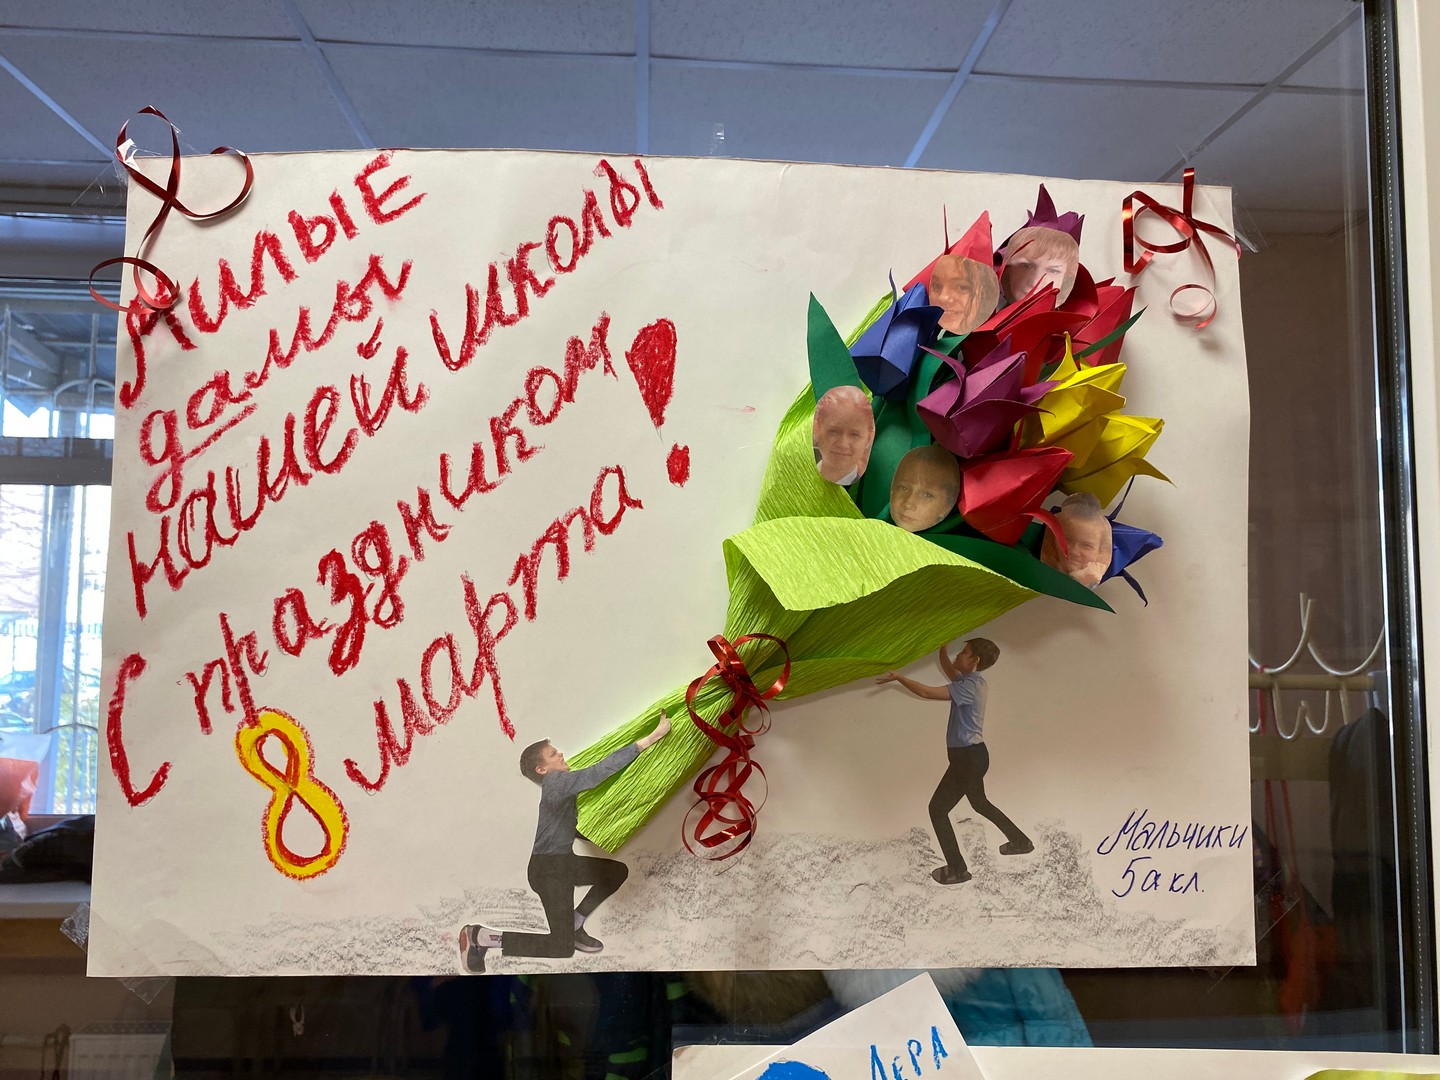 Милые
дамы
нашей школы
С праздником
8 марта!
Мальчики
5а кл.
ЛЕРА